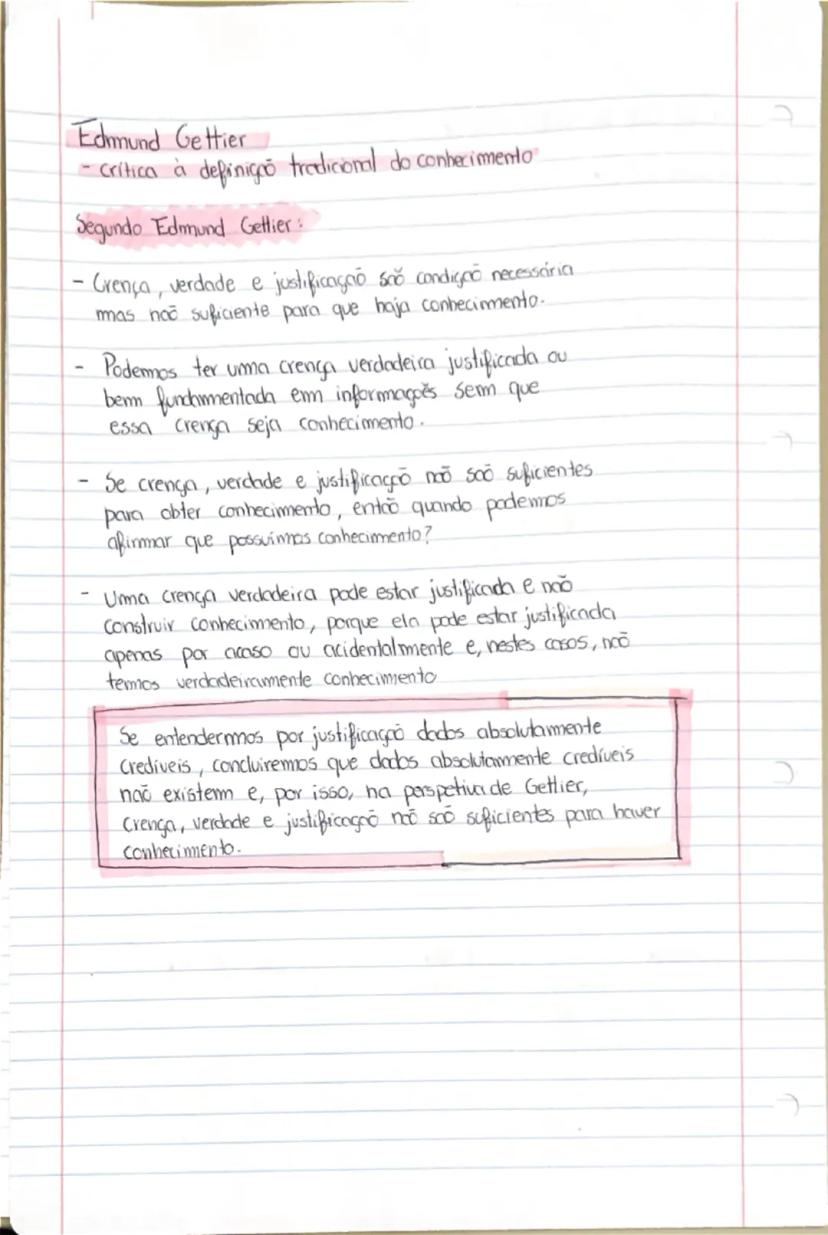 Edmund Gettier
- crítica à definição tradicional do conhecimento
Segundo Edmund Gettier:
- Crença, verdade e justificação são condição necessária
mas não suficiente para que haja conhecimento.
- Podemos ter uma crença verdadeira justificada ou
bem fundamentada em informações sem que
essa crença seja conhecimento.
- Se crença, verdade e justificação não são suficientes
para obter conhecimento, então quando podemos
afirmar que possuímos conhecimento?
- Uma crença verdadeira pode estar justificada e não
construir conhecimento, porque ela pode estar justificada
apenas por acaso ou acidentalmente e, nestes casos, não
temos verdadeiramente conhecimento
Se entendermos por justificação dados absolutamente
credíveis, concluiremos que dados absolutamente credíveis
não existem e, por isso, na perspetiva de Gettier,
crença, verdade e justificação não são suficientes para haver
conhecimento.